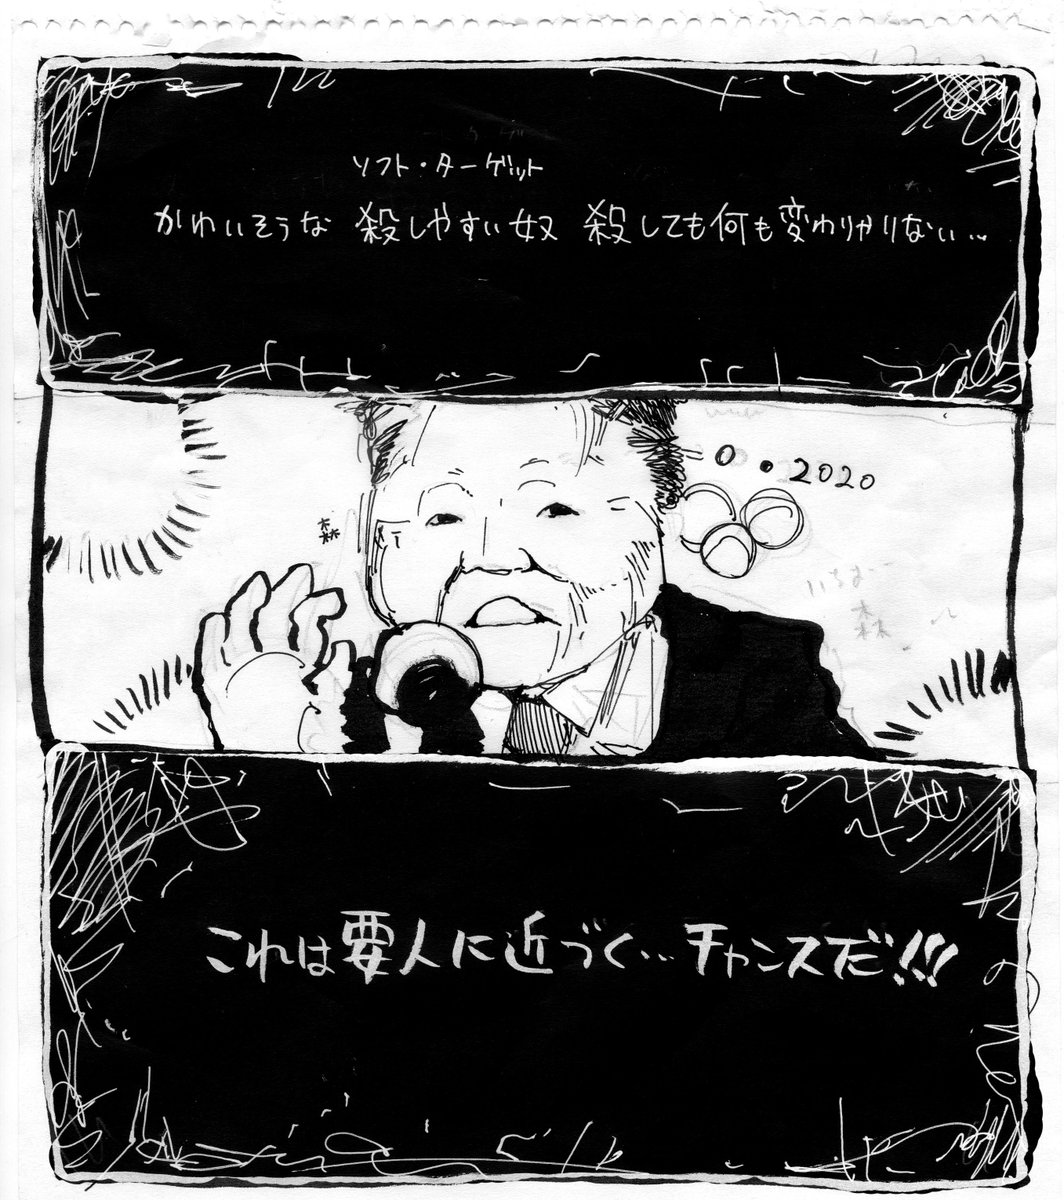 ソフト・ターゲット
かわいそうな 殺しやすい奴 殺しても何も変わりやりない…
森
0.2020
森
これは要人に近づく…チャンスだ!!!